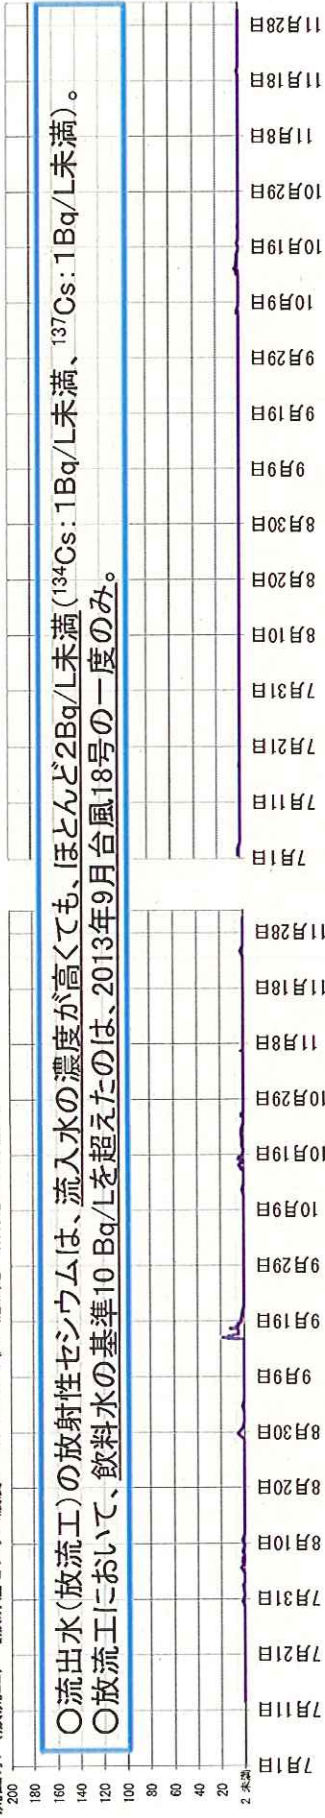 200
180
160
140
120
100
80
60
40
20
2 未満
○流出水(放流工)の放射性セシウムは、流入水の濃度が高くても、ほとんど2Bq/L未満(¹³⁴Cs:1Bq/L未満、¹³⁷Cs:1Bq/L未満)。
○放流工において、飲料水の基準10 Bq/Lを超えたのは、2013年9月台風18号の一度のみ。
7月1日
7月11日
7月21日
7月31日
8月10日
8月20日
8月30日
9月9日
9月19日
9月29日
10月9日
10月19日
10月29日
11月8日
11月18日
11月28日
7月1日
7月11日
7月21日
7月31日
8月10日
8月20日
8月30日
9月9日
9月19日
9月29日
10月9日
10月19日
10月29日
11月8日
11月18日
11月28日